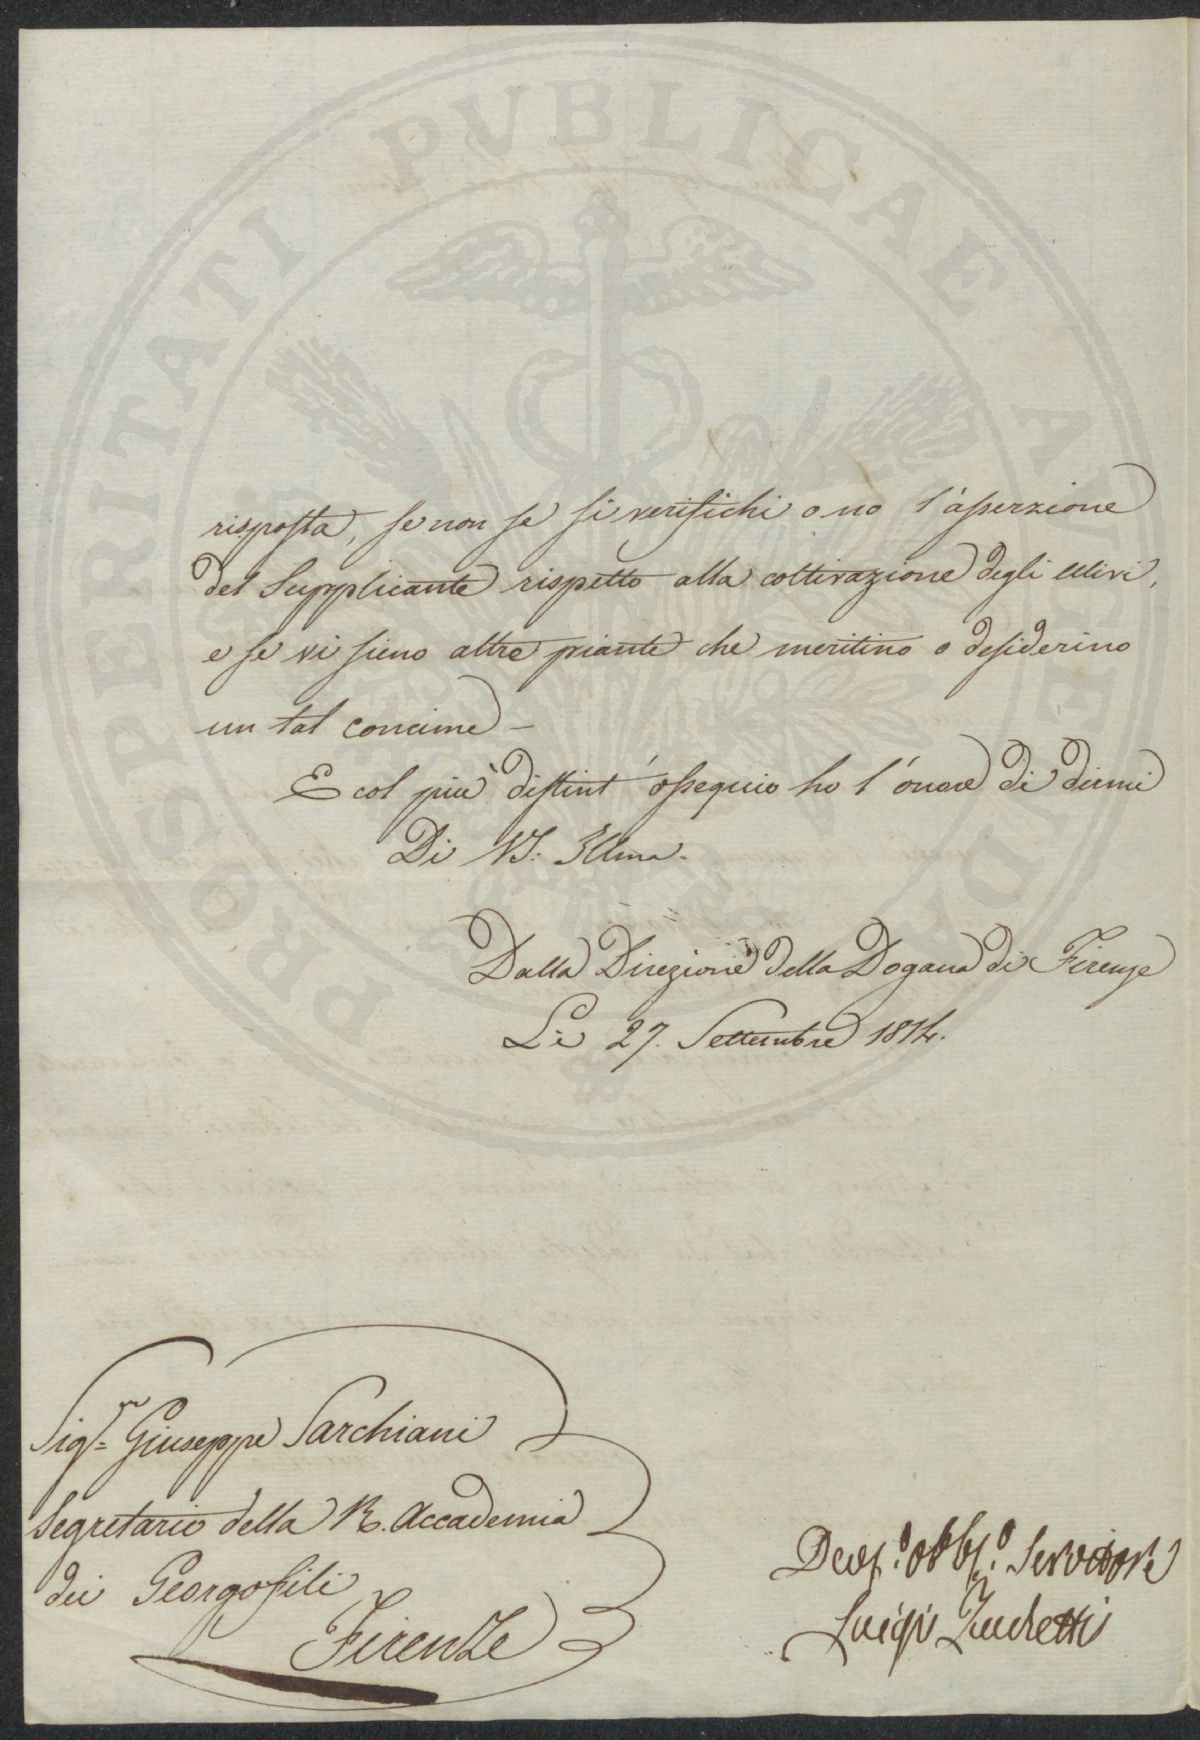 PROSPERITATI PUBLICAE AUGENDAE
risposta, se non se si verifichi o no l'asserzione
del Supplicante rispetto alla coltivazione degli Ulivi,
e se vi sieno altre piante che meritino o desiderino
un tal concime -
E col più distint' ossequio ho l'onore di dirmi
Di VS. Illma.
Dalla Direzione della Dogana di Firenze
Li 27. Settembre 1814.
Sigr. Giuseppe Sarchiani
Segretario della R. Accademia
dei Georgofili
Firenze
Devo. obblo. Servitore
Luigi